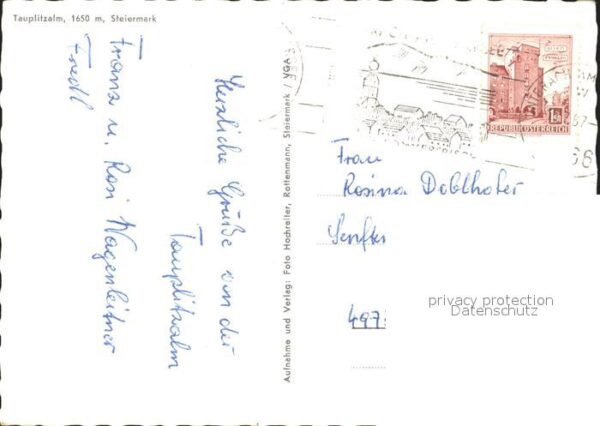 Tauplitzalm, 1650 m, Steiermark
Herzliche Grüße von der
Tauplitzalm
Franz u. Rosi Wagenleitner
Friedl
Aufnahme und Verlag: Foto Hochreiter, Rottenmann, Steiermark / VGA
REPUBLIK ÖSTERREICH
Frau
Rosina Doblhofer
Senft
497
privacy protection
Datenschutz